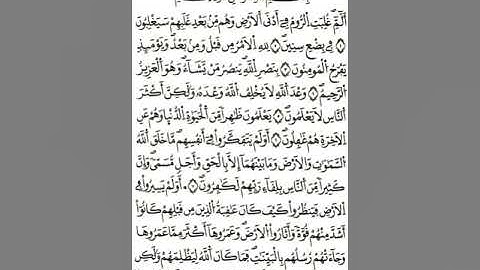 الٓمٓ غُلِبَتِ الرُّومُ فِي أَدْنَى الْأَرْضِ وَهُم مِّنۢ بَعْدِ غَلَبِهِمْ سَيَغْلِبُونَ
فِي بِضْعِ سِنِينَ لِلَّهِ الْأَمْرُ مِن قَبْلُ وَمِنۢ بَعْدُ وَيَوْمَئِذٍ
يَفْرَحُ الْمُؤْمِنُونَ بِنَصْرِ اللَّهِ يَنصُرُ مَن يَشَاءُ وَهُوَ الْعَزِيزُ
الرَّحِيمُ وَعْدَ اللَّهِ لَا يُخْلِفُ اللَّهُ وَعْدَهُ وَلَٰكِنَّ أَكْثَرَ
النَّاسِ لَا يَعْلَمُونَ يَعْلَمُونَ ظَاهِرًا مِّنَ الْحَيَوٰةِ الدُّنْيَا وَهُمْ عَنِ
الْآخِرَةِ هُمْ غَافِلُونَ أَوَلَمْ يَتَفَكَّرُوا فِي أَنفُسِهِم مَّا خَلَقَ اللَّهُ
السَّمَٰوَٰتِ وَالْأَرْضَ وَمَا بَيْنَهُمَا إِلَّا بِالْحَقِّ وَأَجَلٍ مُّسَمًّى وَإِنَّ
كَثِيرًا مِّنَ النَّاسِ بِلِقَاءِ رَبِّهِمْ لَكَٰفِرُونَ أَوَلَمْ يَسِيرُوا فِي
الْأَرْضِ فَيَنظُرُوا كَيْفَ كَانَ عَٰقِبَةُ الَّذِينَ مِن قَبْلِهِمْ كَانُوا
أَشَدَّ مِنْهُمْ قُوَّةً وَأَثَارُوا الْأَرْضَ وَعَمَرُوهَا أَكْثَرَ مِمَّا عَمَرُوهَا
وَجَاءَتْهُمْ رُسُلُهُم بِالْبَيِّنَٰتِ فَمَا كَانَ اللَّهُ لِيَظْلِمَهُمْ وَلَٰكِن